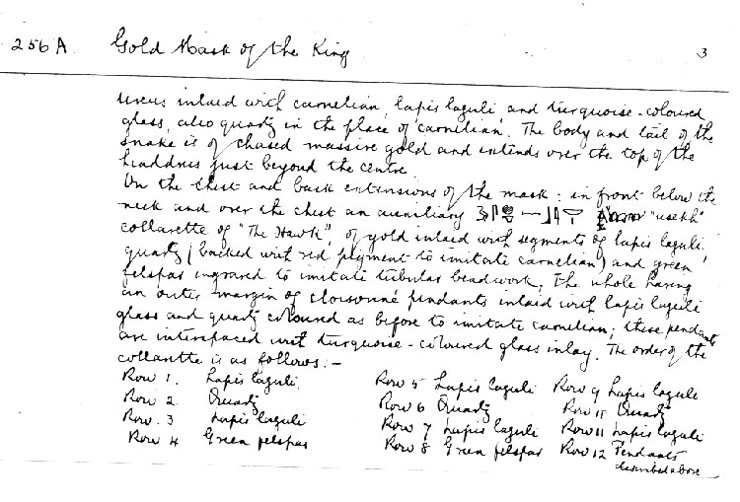 256 A. Gold Mask of the King 3
uraeus inlaid with carnelian, lapis lazuli and turquoise-coloured
glass, also quartz in the place of carnelian. The body and tail of the
snake is of chased massive gold and extends over the top of the
headdress just beyond the centre.
On the chest and back extensions of the mask: in front below the
neck and over the chest an auxiliary "usekh"
collarette of "The Hawk", of gold inlaid with segments of lapis lazuli,
quartz (backed with red pigment to imitate carnelian) and green
felspar engraved to imitate tubular beadwork, the whole having
an outer margin of cloisonné pendants inlaid with lapis lazuli
glass and quartz coloured as before to imitate carnelian; these pendants
are interspaced with turquoise-coloured glass inlay. The order of the
collarette is as follows:-
Row 1. Lapis lazuli Row 5 Lapis lazuli Row 9 Lapis lazuli
Row 2 Quartz Row 6 Quartz Row 10 Quartz
Row. 3 Lapis lazuli Row 7 Lapis lazuli Row 11 Lapis lazuli
Row 4 Green felspar Row 8 Green felspar Row 12 Pendants
described above